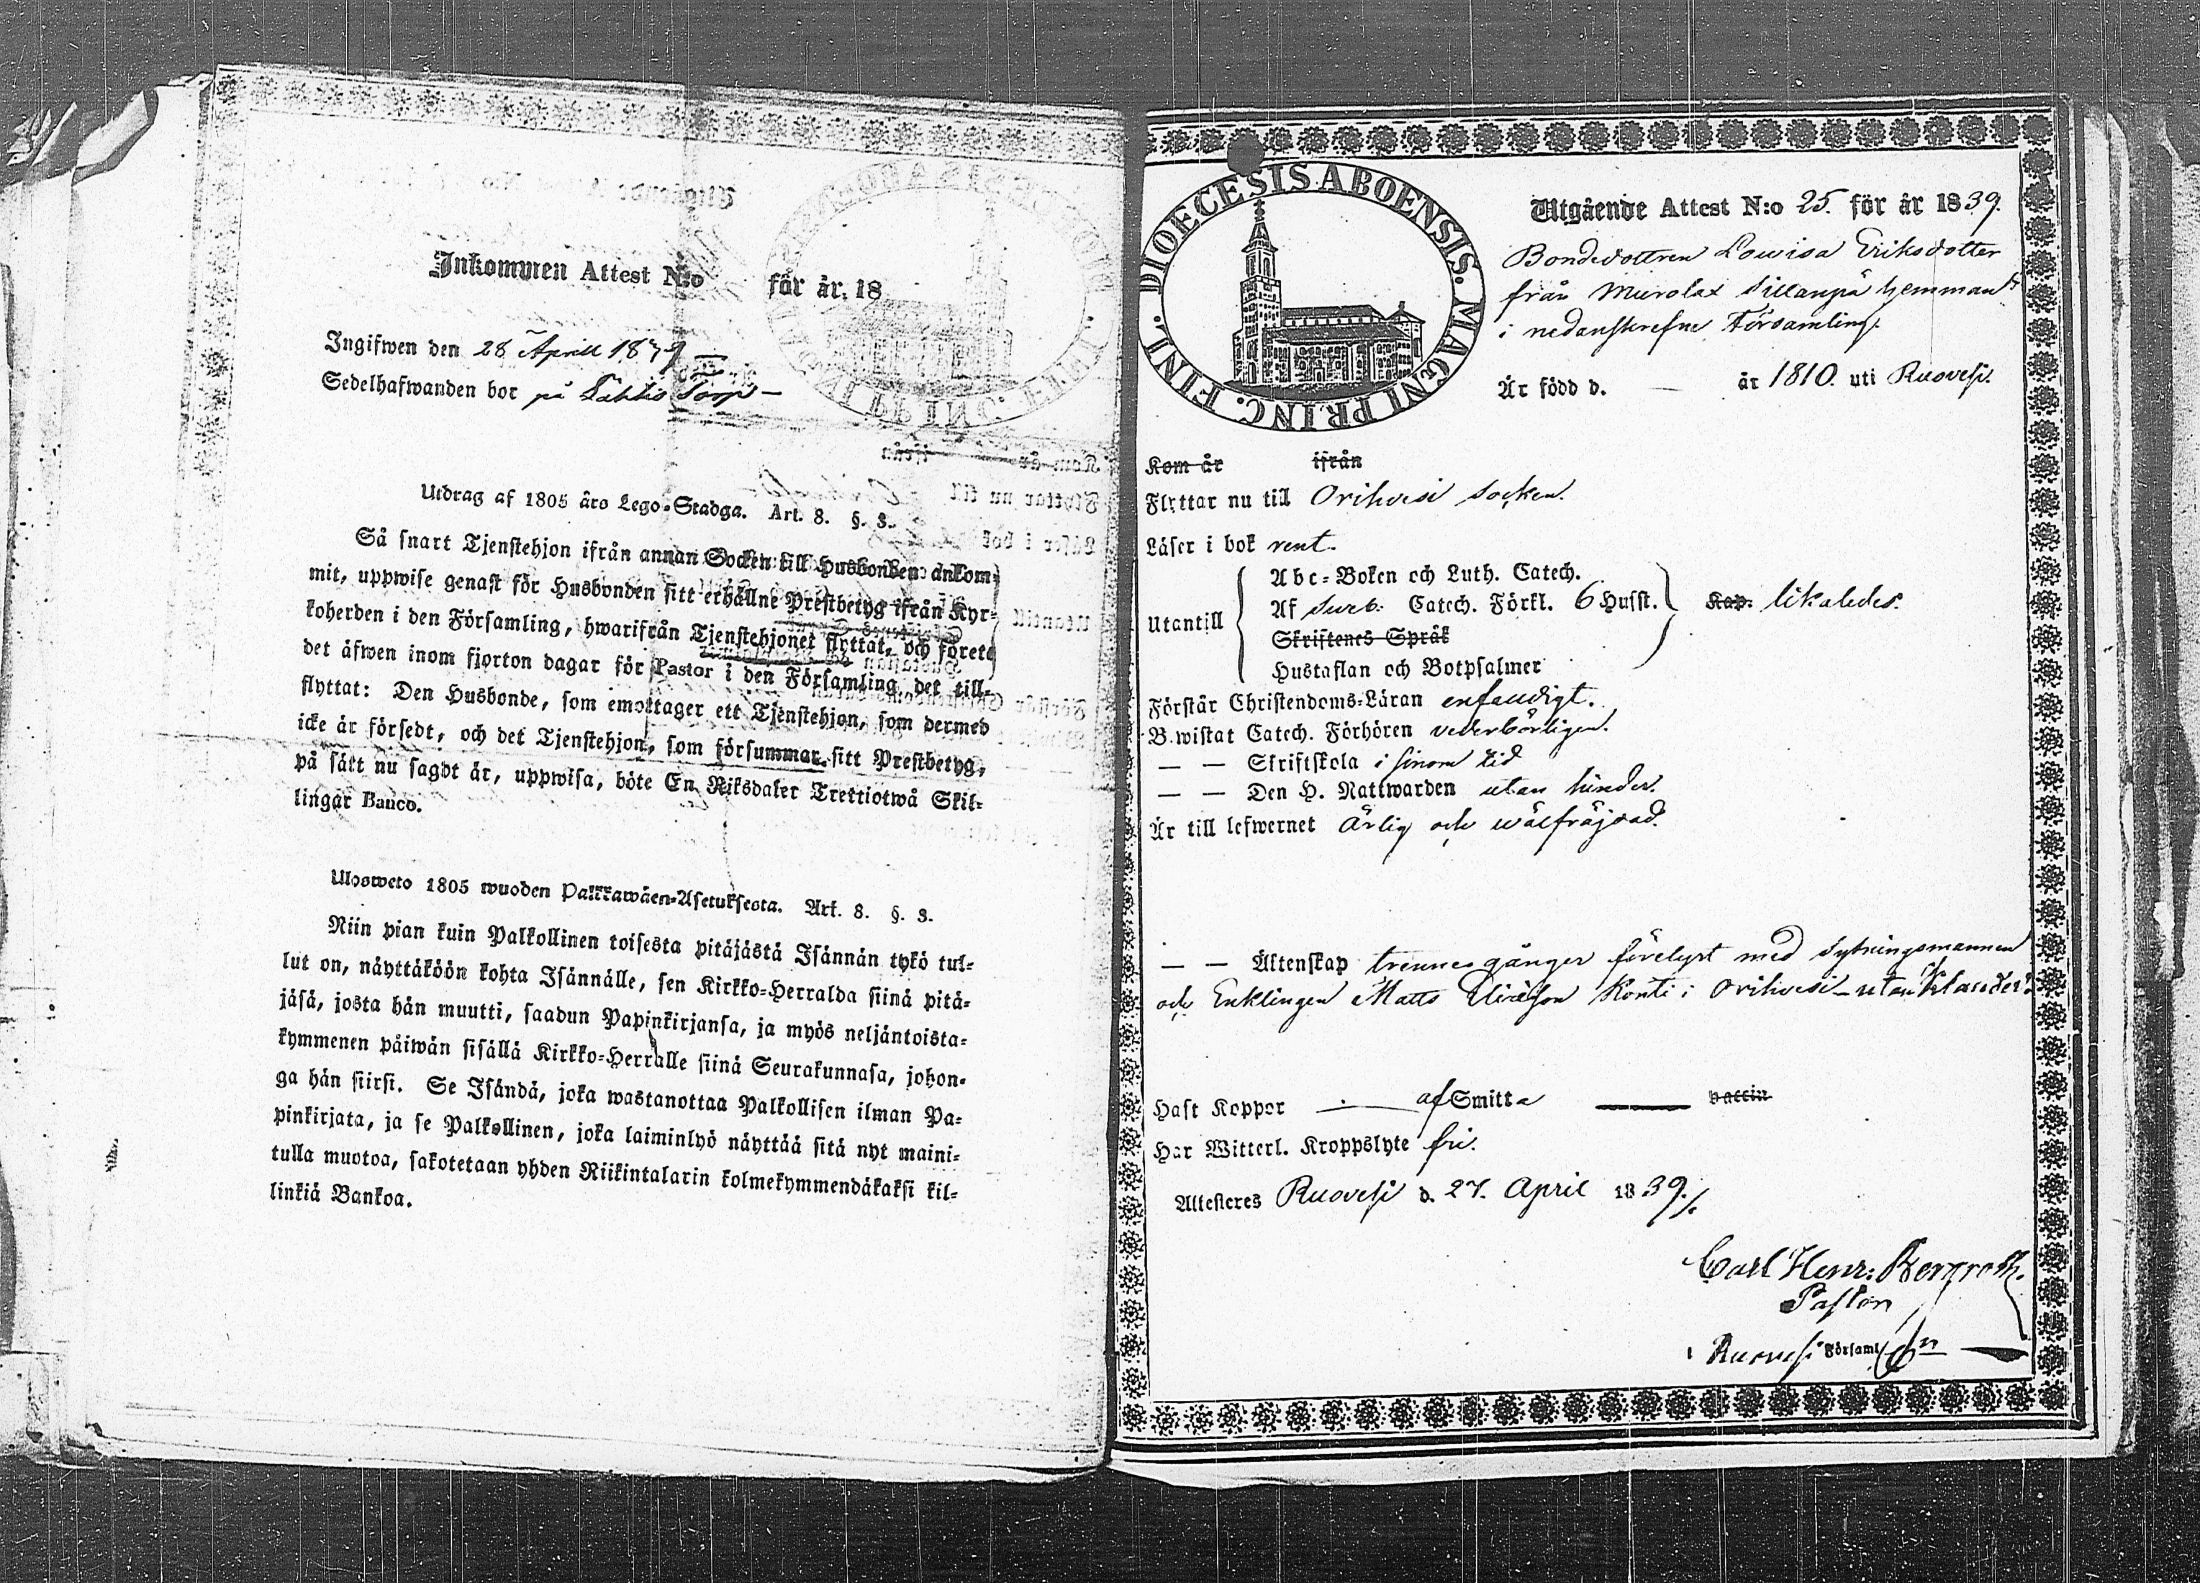 Inkommen Attest N:o för år 18
Ingifwen den 28 Aprill 1839
Sedelhafwanden bor på Lahtis Torp
Utdrag af 1805 års Lego-Stadga. Art. 8. §. 3.
Så snart Tjenstehjon ifrån annan Socken till Husbonden ankom-
mit, uppwise genast för Husbonden sitt erhållne Prestbetyg ifrån Kyr-
koherden i den Församling, hwarifrån Tjenstehjonet flyttat, och förete
det äfwen inom fjorton dagar för Pastor i den Församling det till-
flyttat: Den Husbonde, som emottager ett Tjenstehjon, som dermed
icke är försedt, och det Tjenstehjon, som försummar sitt Prestbetyg,
på sätt nu sagdt är, uppwisa, böte En Riksdaler Trettiotwå Skil-
lingar Banco.
Ulosweto 1805 wuoden Palkkawäen-Asetuksesta. Art. 8. §. 3.
Niin pian kuin Palkollinen toisesta pitäjästä Isännän tykö tul-
lut on, näyttäköön kohta Isännälle, sen Kirkko-Herralda siinä pitä-
jäsä, josta hän muutti, saadun Papinkirjansa, ja myös neljäntoista-
kymmenen päiwän sisällä Kirkko-Herralle siinä Seurakunnasa, johon-
ga hän siirsi. Se Isändä, joka wastanottaa Palkollisen ilman Pa-
pinkirjata, ja se Palkollinen, joka laiminlyö näyttää sitä nyt maini-
tulla muotoa, sakotetaan yhden Riikintalarin kolmekymmendäkaksi kil-
linkiä Bankoa.
DIOECESIS ABOENSIS. MAGNI PRINC. FINL.
Utgående Attest N:o 25. för år 1839.
Bondedottren Lowisa Eriksdotter
från Murolax Sillanpä hemman
i nedanskrefne Församling.
Är född d. — år 1810. uti Ruovesi.
Kom år ifrån
Flyttar nu till Orihvesi socken.
Läser i bok rent.
Abc-Boken och Luth. Catech.
Utantill Af Sveb. Catech. Förkl. 6 Husst. Kap. likaledes.
Skriftenes Språk
Hustaflan och Botpsalmer
Förstår Christendoms-Läran enfaldigt.
B.wistat Catech. Förhören vederbörligen.
— — Skriftskola i sinom tid
— — Den H. Nattwarden utan hinder.
Är till lefwernet ärlig och wälfräjdad.
— — Äktenskap trenne gånger förelyst med Sytningsmannen
och Enklingen Matts Ulricsson Konti i Orihvesi – utan klander.
Haft Koppor — af Smitta — vaccin
Har Witterl. Kroppslyte fri.
Attesteres Ruovesi d. 27. April 1839./.
Carl Henr: Bergroth.
Pastor
i Ruovesi Församl